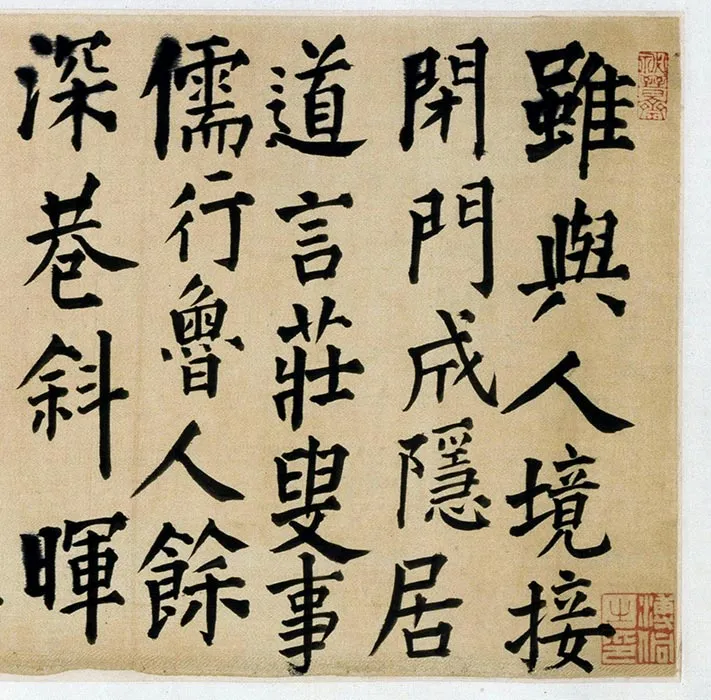 雖與人境接
閉門成隱居
道言莊叟事
儒行魯人餘
深巷斜暉